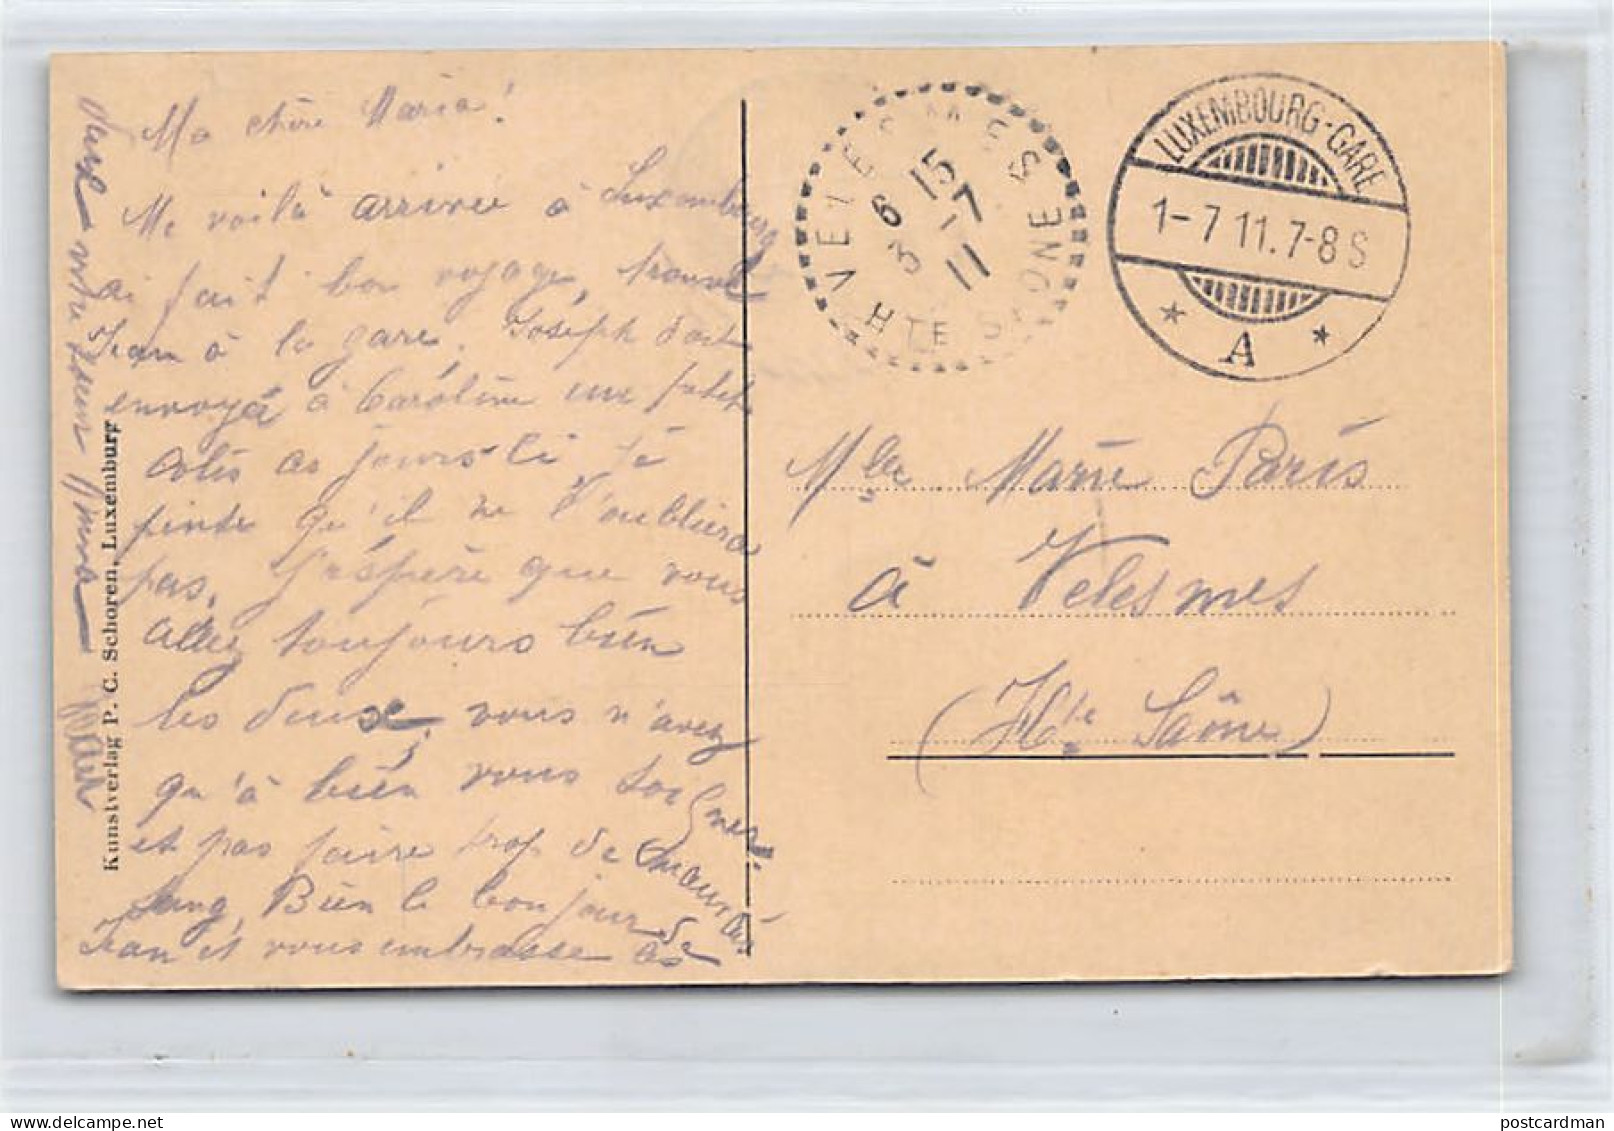 Ma chère Maria!
Me voilà arrivée à Luxembourg
ai fait bon voyage, trouvé
Jean à la gare. Joséph doit
envoyé à Caroline une petite
colis ces jours ci, je
pense qu'il ne l'oubliera
pas. J'éspère que vous
allez toujours bien
les deux, vous n'avez
qu'à bien vous soigner
et pas faire trop de mauvais
sang, Bien le bonjour de
Jean et vous embrasse
votre soeur Anna
Kunstverlag P. C. Schoren, Luxemburg
VELESMES
HTE SAONE
6 15
3 -7
11
LUXEMBOURG-GARE
1-7 11.7-8 S
* A *
Mlle Marie Paris
à Velesmes
(Hte Saône)
postcardman